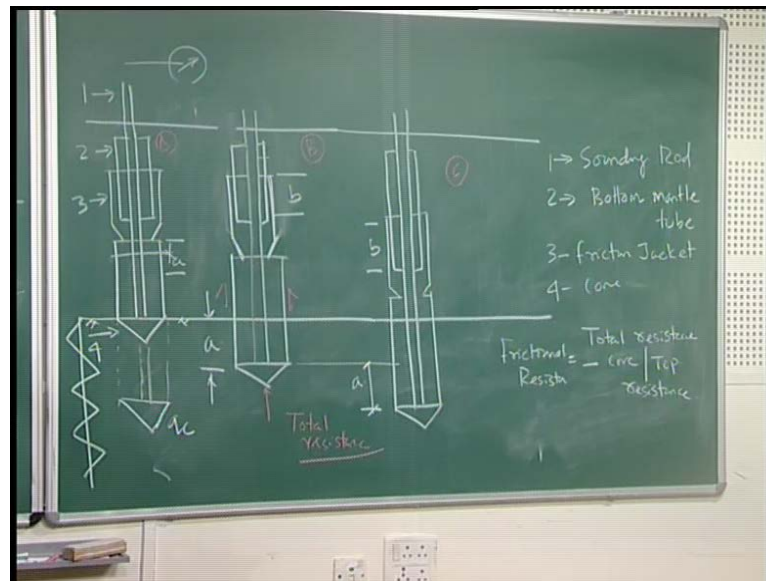 1→
2→
3→
4
a
qc
A
B
b
a
Total
resistance
C
b
a
1→ Sounding Rod
2→ Bottom mantle
tube
3- friction Jacket
4- Cone
Frictional = Total resistance
Resista - Cone / Top
resistance